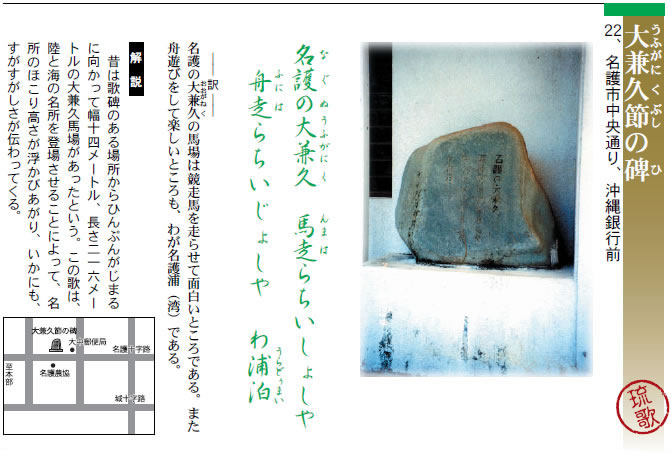 大兼久節の碑
うふがに くぶし ひ
22、名護市中央通り、沖縄銀行前
琉歌
名護の大兼久
名護の大兼久 馬走らちいしょしや
なぐぬうふがにく んまは
舟走らちいじょしや わ浦泊
ふには うらどぅまい
訳
名護の大兼久の馬場は競走馬を走らせて面白いところである。また
おおがねく
舟遊びをして楽しいところも、わが名護浦（湾）である。
解説
昔は歌碑のある場所からひんぷんがじまる
に向かって幅十四メートル、長さ二一六メー
トルの大兼久馬場があったという。この歌は、
陸と海の名所を登場させることによって、名
所のほこり高さが浮かびあがり、いかにも、
すがすがしさが伝わってくる。
大兼久節の碑
大中郵便局
名護十字路
名護農協
至本部
城十字路